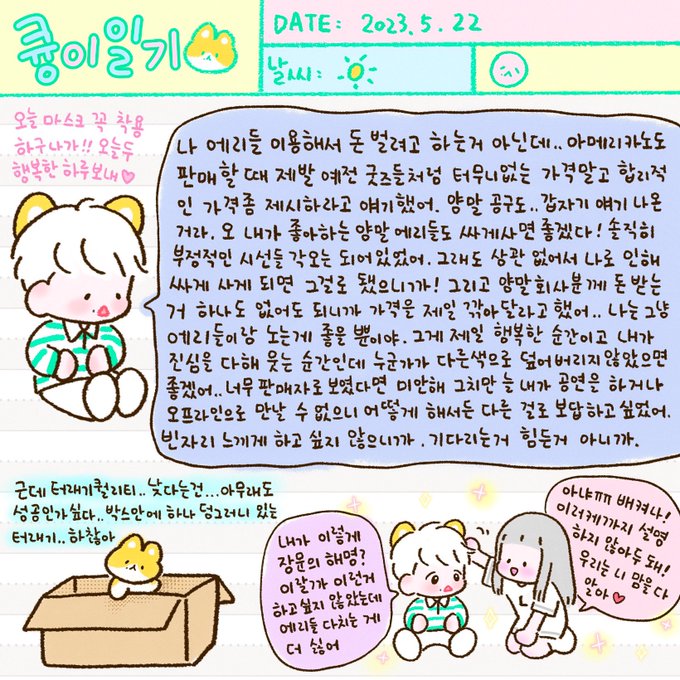 큥이일기
DATE: 2023.5.22
날씨:
오늘 마스크 꼭 착용
하구 나가!! 오늘두
행복한 하루보내♡
나 에리들 이용해서 돈 벌려고 하는거 아닌데.. 아메리카노도
판매할 때 제발 예전 굿즈들처럼 터무니없는 가격말고 합리적
인 가격좀 제시하라고 얘기했어. 양말 공구도.. 갑자기 얘기 나온
거라. 오 내가 좋아하는 양말 에리들도 싸게사면 좋겠다! 솔직히
부정적인 시선들 각오는 되어있었어. 그래도 상관 없어서 나로 인해
싸게 사게 되면 그걸로 됐으니가! 그리고 양말회사분께 돈 받는
거 하나도 없어도 되니까 가격을 제일 깎아달라고 했어.. 나는 그냥
에리들이랑 노는게 좋을 뿐이야. 그게 제일 행복한 순간이고 내가
진심을 다해 웃는 순간인데 누군가가 다른색으로 덮어버리지않았으면
좋겠어.. 너무 판매자로 보였다면 미안해 그치만 늘 내가 공연을 하거나
오프라인으로 만날 수 없으니 어떻게 해서든 다른 걸로 보답하고 싶었어.
빈자리 느끼게 하고 싶지 않으니까. 기다리는거 힘든거 아니까.
근데 터래기퀄리티.. 낮다는건... 아무래도
성공인가싶다.. 박스안에 하나 덩그러니 있는
터래기.. 하찮아
내가 이렇게
장문의 해명?
이랄가 이런거
하고싶지 않았는데
에리들 다치는 게
더 싫어
아냐ㅠㅠ 배켜나!
이러케까지 설명
하지 않아두 돼!
우리는 니 맘을 다
알아♥